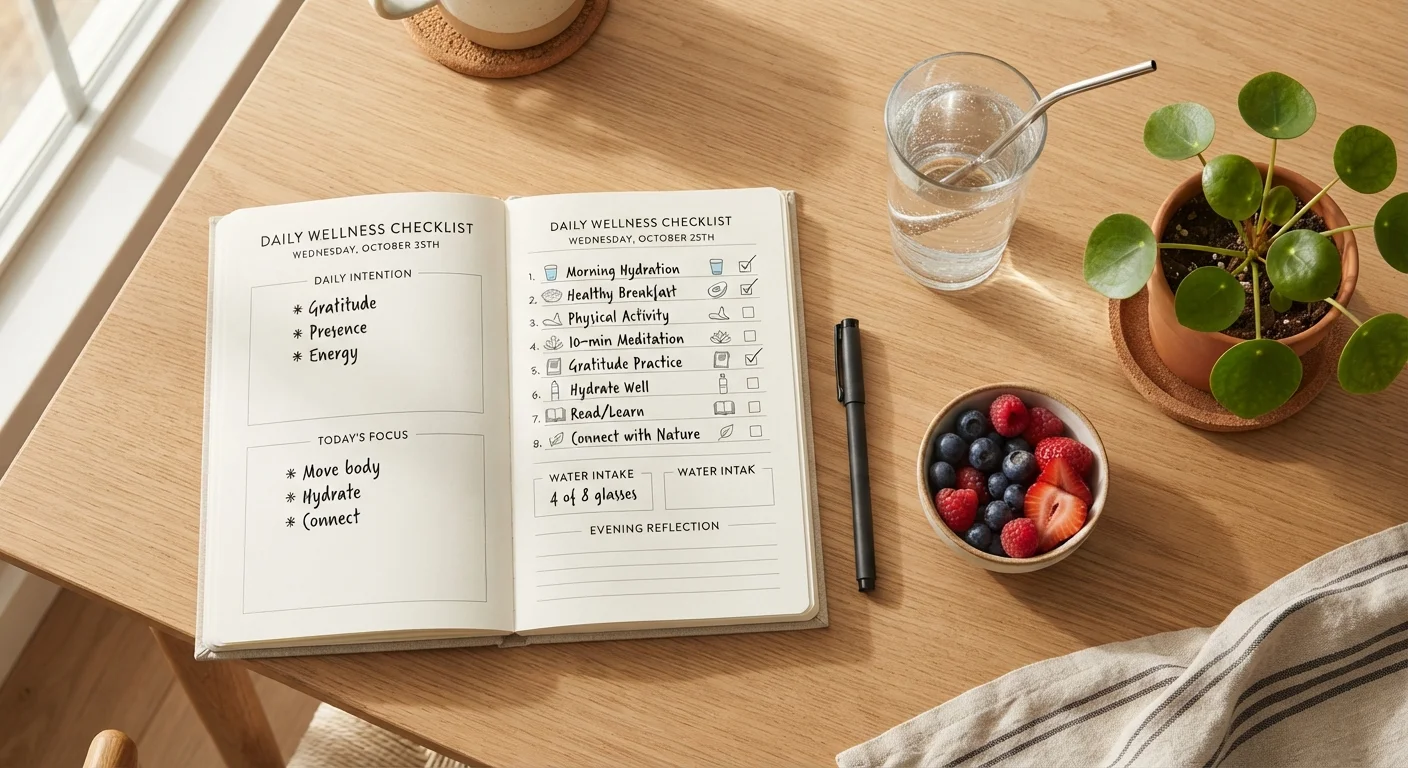 DAILY WELLNESS CHECKLIST
WEDNESDAY, OCTOBER 35TH
DAILY INTENTION
* Gratitude
* Presence
* Energy
TODAY'S FOCUS
* Move body
* Hydrate
* Connect
DAILY WELLNESS CHECKLIST
WEDNESDAY, OCTOBER 25TH
1. Morning Hydration
2. Healthy Breakfast
3. Physical Activity
4. 10-min Meditation
5. Gratitude Practice
6. Hydrate Well
7. Read/Learn
9. Connect with Nature
WATER INTAKE
4 of 8 glasses
WATER INTAK
EVENING REFLECTION